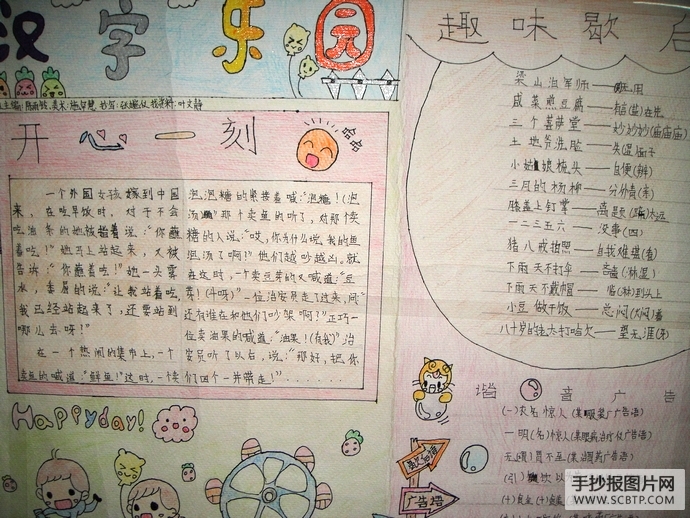 汉字乐园
趣味歇后
开心一刻
哈哈
一个外国女孩嫁到中国
来，在吃早饭时，对于不会
吃油条的她被
吃！"她马上站起来，又被
告诉："你蘸着吃！"她一头雾
水，委屈的说："让我站着吃，
我已经站起来了，还要站到
哪儿去呀？"
在一个热闹的集市上，一个
卖鱼的喊道："鲜鱼！"这时，一个卖
泡泡糖的紧接着喊："泡糖！(泡
汤)"那个卖鱼的听了，对那个卖
糖的人说："哎，你为什么说，我的鱼
泡汤了啊！"他们越吵越凶。就
在这时，一个卖豆芽的又喊道："豆
芽！(斗呀)"一位治安员走了过来，问"
还有谁在和他们吵架啊？"正巧一
位卖油果的喊道："油果！(有我)"治
安员听了以后，说："那好，把你
们四个一并带走！"......
梁山泊军师——吴用
咸菜煎豆腐——有言(盐)在先
三个菩萨堂——妙妙妙(庙庙庙)
土地爷洗脸——失
小姑娘梳头——自便(辫)
三月的杨柳——分外青
膝盖上钉掌——离题(蹄)太远
一二三五六——没事(四)
猪八戒拍照——自我难堪(看)
下雨天不打伞——(淋湿)
下雨天不戴帽——临(淋)到头上
小豆做干饭——总闷(焖)着
八十岁的老太打哈欠——望无涯(牙)
Happyday!
谐音广告
(一)衣名惊人(某服装广告语)
一明(名)惊人(某眼药治疗仪广告语)
歇后语
广告塔
手抄报图片网
WWW.SCBTP.COM